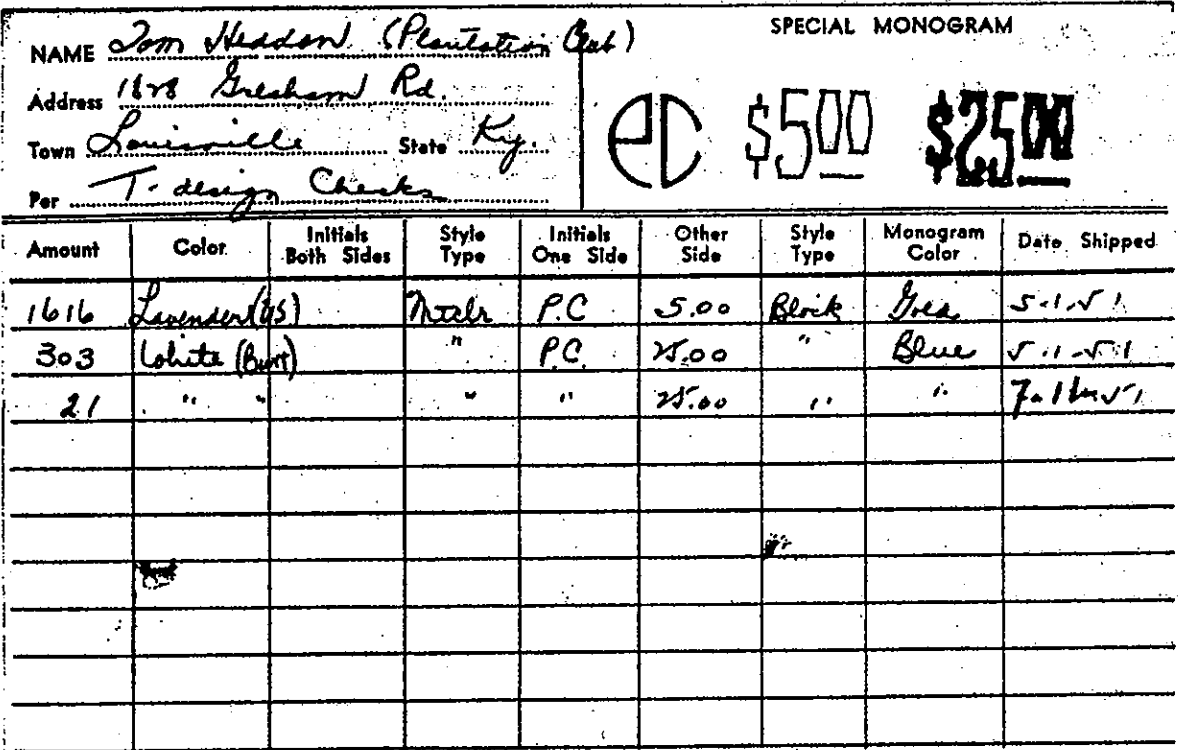 SPECIAL MONOGRAM
NAME Tom Heddon (Plantation Club)
Address Gresham Rd.
Town Louisville State Ky.
Per T-design Checks
PC $5.00 $25.00
Amount Color Initials Both Sides Style Type Initials One Side Other Side Style Type Monogram Color Date Shipped
1616 Lavender P.C 5.00 Block Gold 5-1-51
303 White P.C. 25.00 " Blue 5-11-51
21 " " " " 25.00 " "